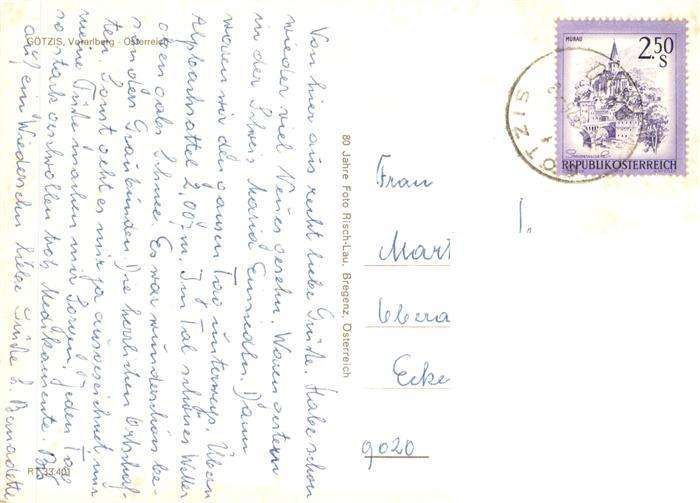 GÖTZIS, Vorarlberg - Österreich
Von hier aus recht liebe Grüße. Habe schon
wieder viel Neues gesehn. Waren gestern
in der Schweiz Maria Einsiedln. Dann
waren wir den ganzen Tag unterwegs. Übern
2.007m. Im Tal schönes Wetter
oben aber Schnee. Es war wunderschön be-
sonders Graubünden. Die herrlichen Ortschaf-
ten. Sonst geht es mir ja ausgezeichnet nur
meine Füße machen mir Sorgen. Jeden Tag
so stark geschwollen trotz Medikamente. Bis
auf ein Wiedersehn liebe Grüße b. Bernadette
RT 33.401
80 Jahre Foto Risch-Lau, Bregenz, Österreich
MURAU
2.50
S
REPUBLIK ÖSTERREICH
GÖTZIS
Frau
Mari
Ebera
Ecke
9020